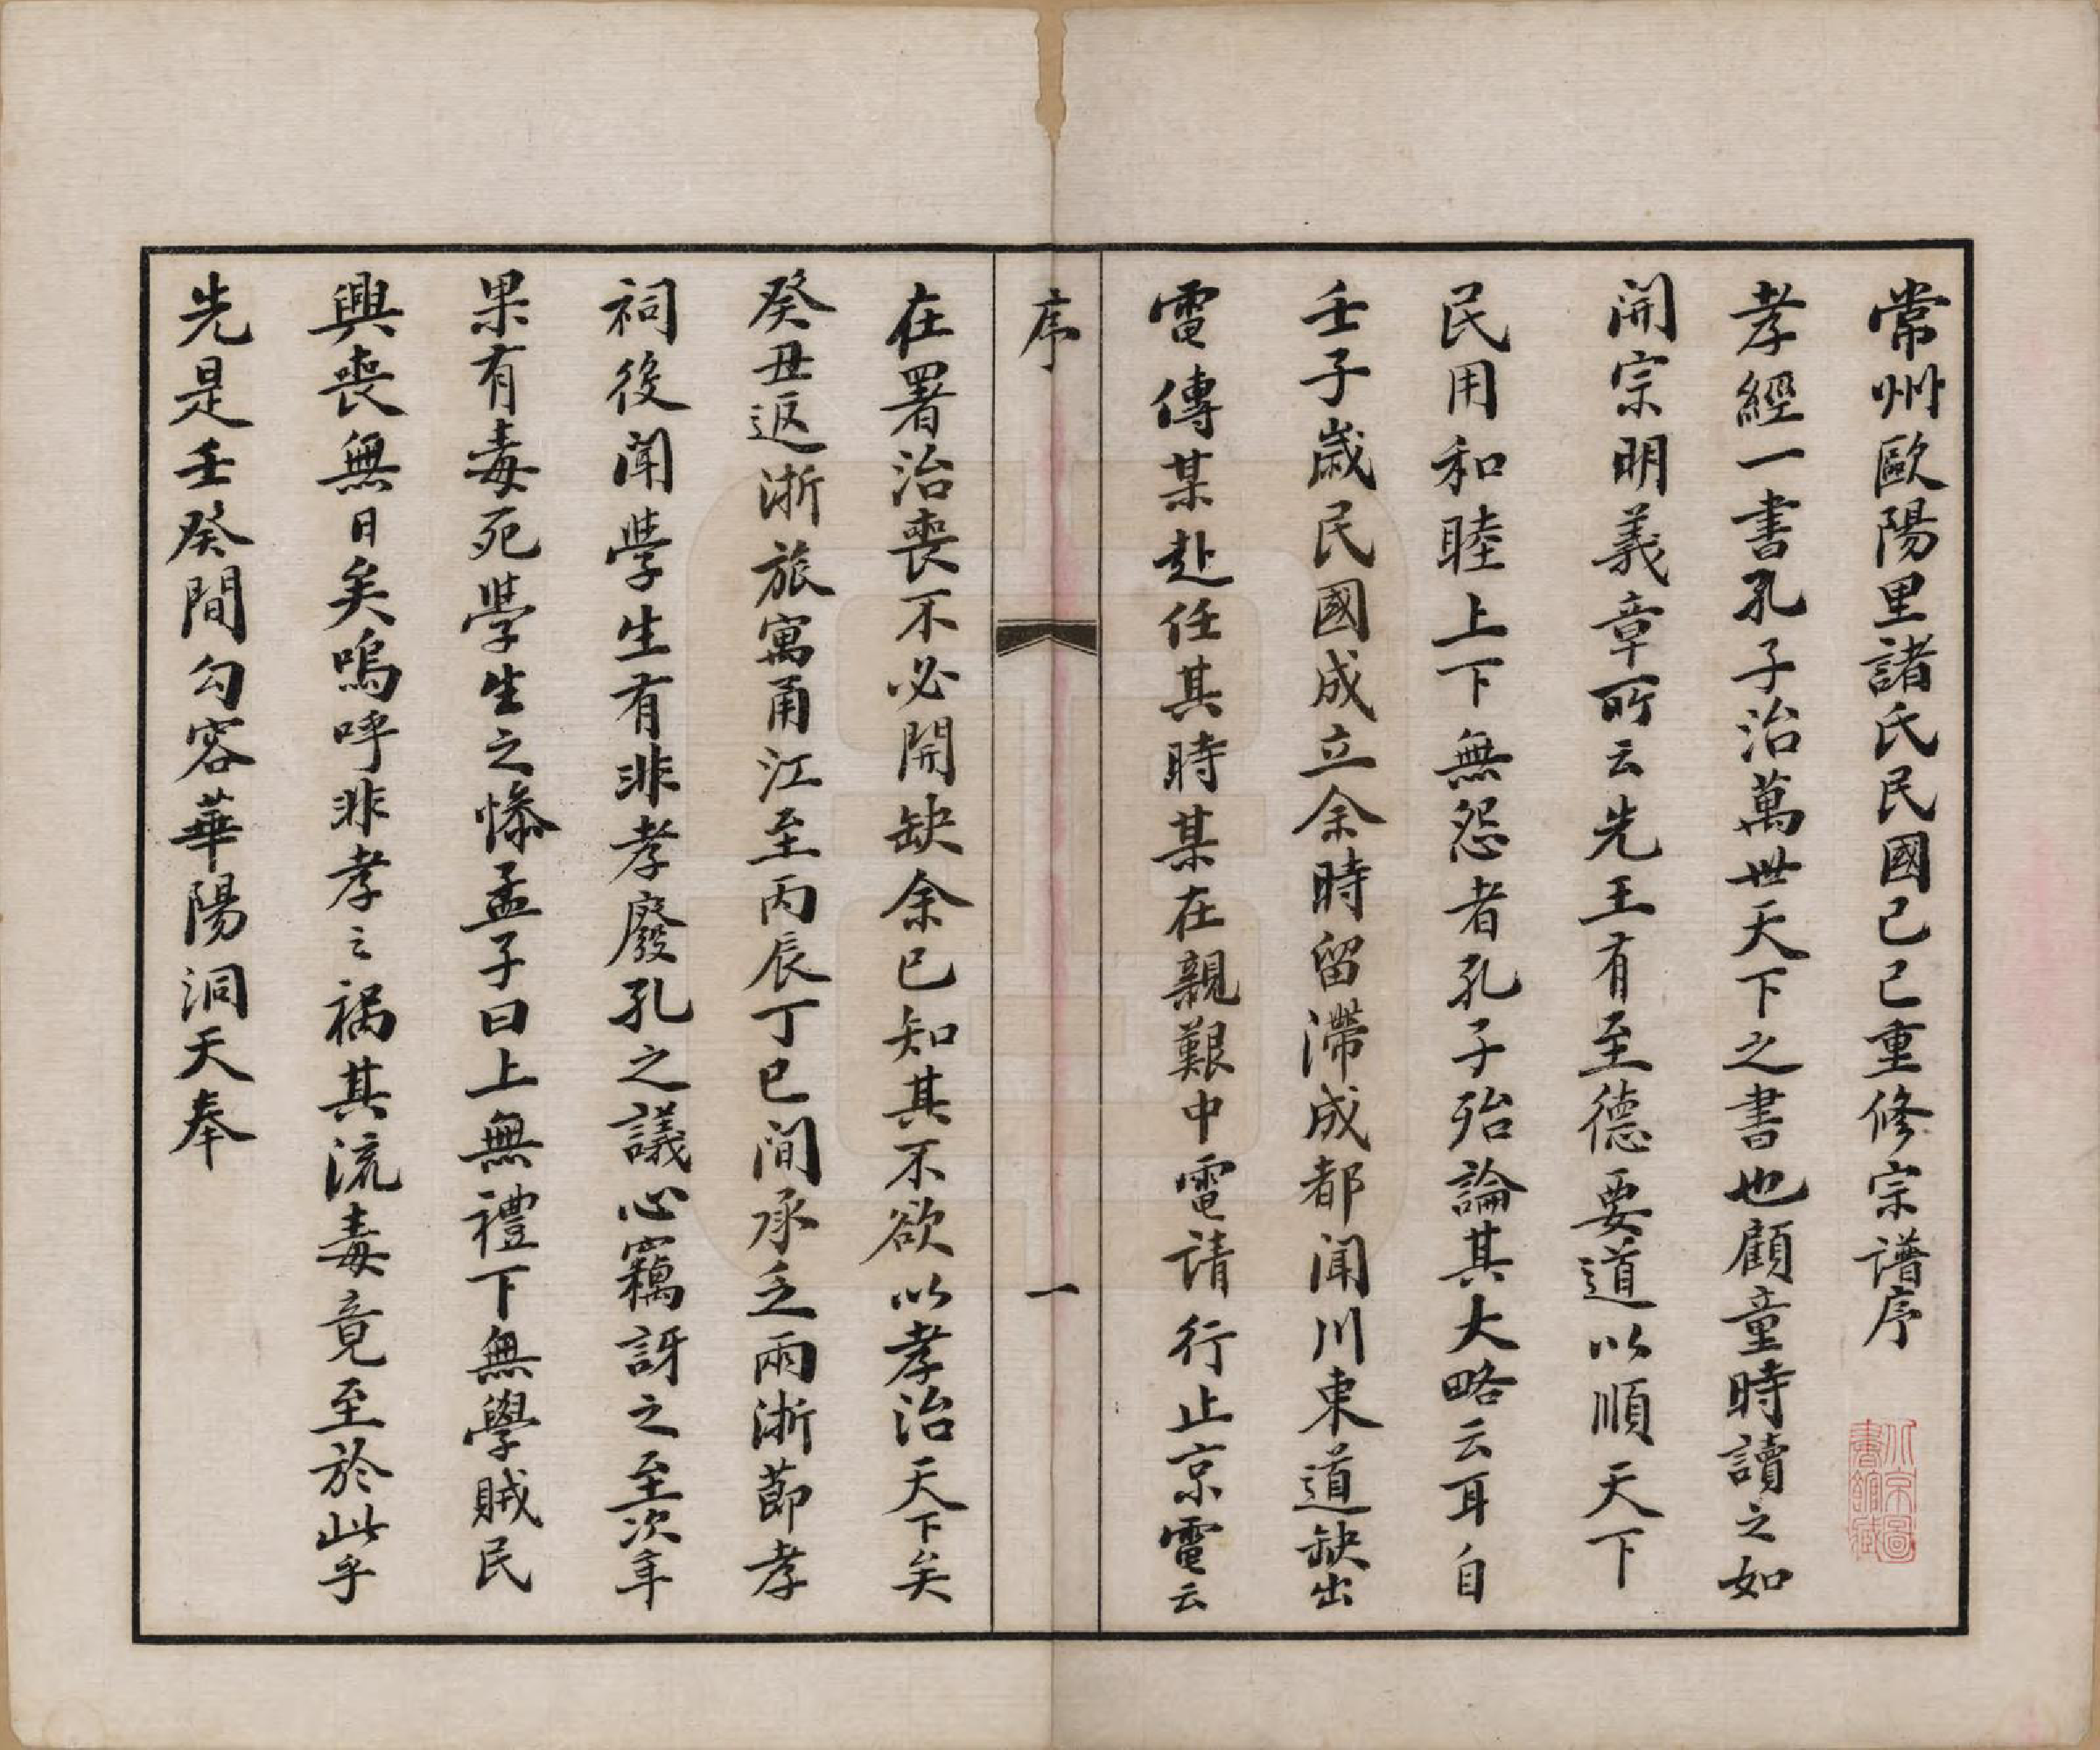 常州歐陽里諸氏民國己巳重修宗谱序
孝經一書孔子治萬世天下之書也顧童時讀之如
開宗明義章所云先王有至德要道以順天下
民用和睦上下無怨者孔子殆論其大略云耳自
壬子歲民國成立余時留滯成都闻川東道缺出
電傳某赴任其時某在親艱中電请行止京電云
序
一
在署治喪不必開缺余已知其不欲以孝治天下矣
癸丑返浙旅寓甬江至丙辰丁巳间承乏兩浙莭孝
祠後闻學生有非孝廢孔之議心竊訝之至次年
果有毒死學生之慘孟子曰上無禮下無學賊民
興喪無日矣嗚呼非孝之禍其流毒竟至於此乎
先是壬癸間勾容華陽洞天奉
北京圖書館藏